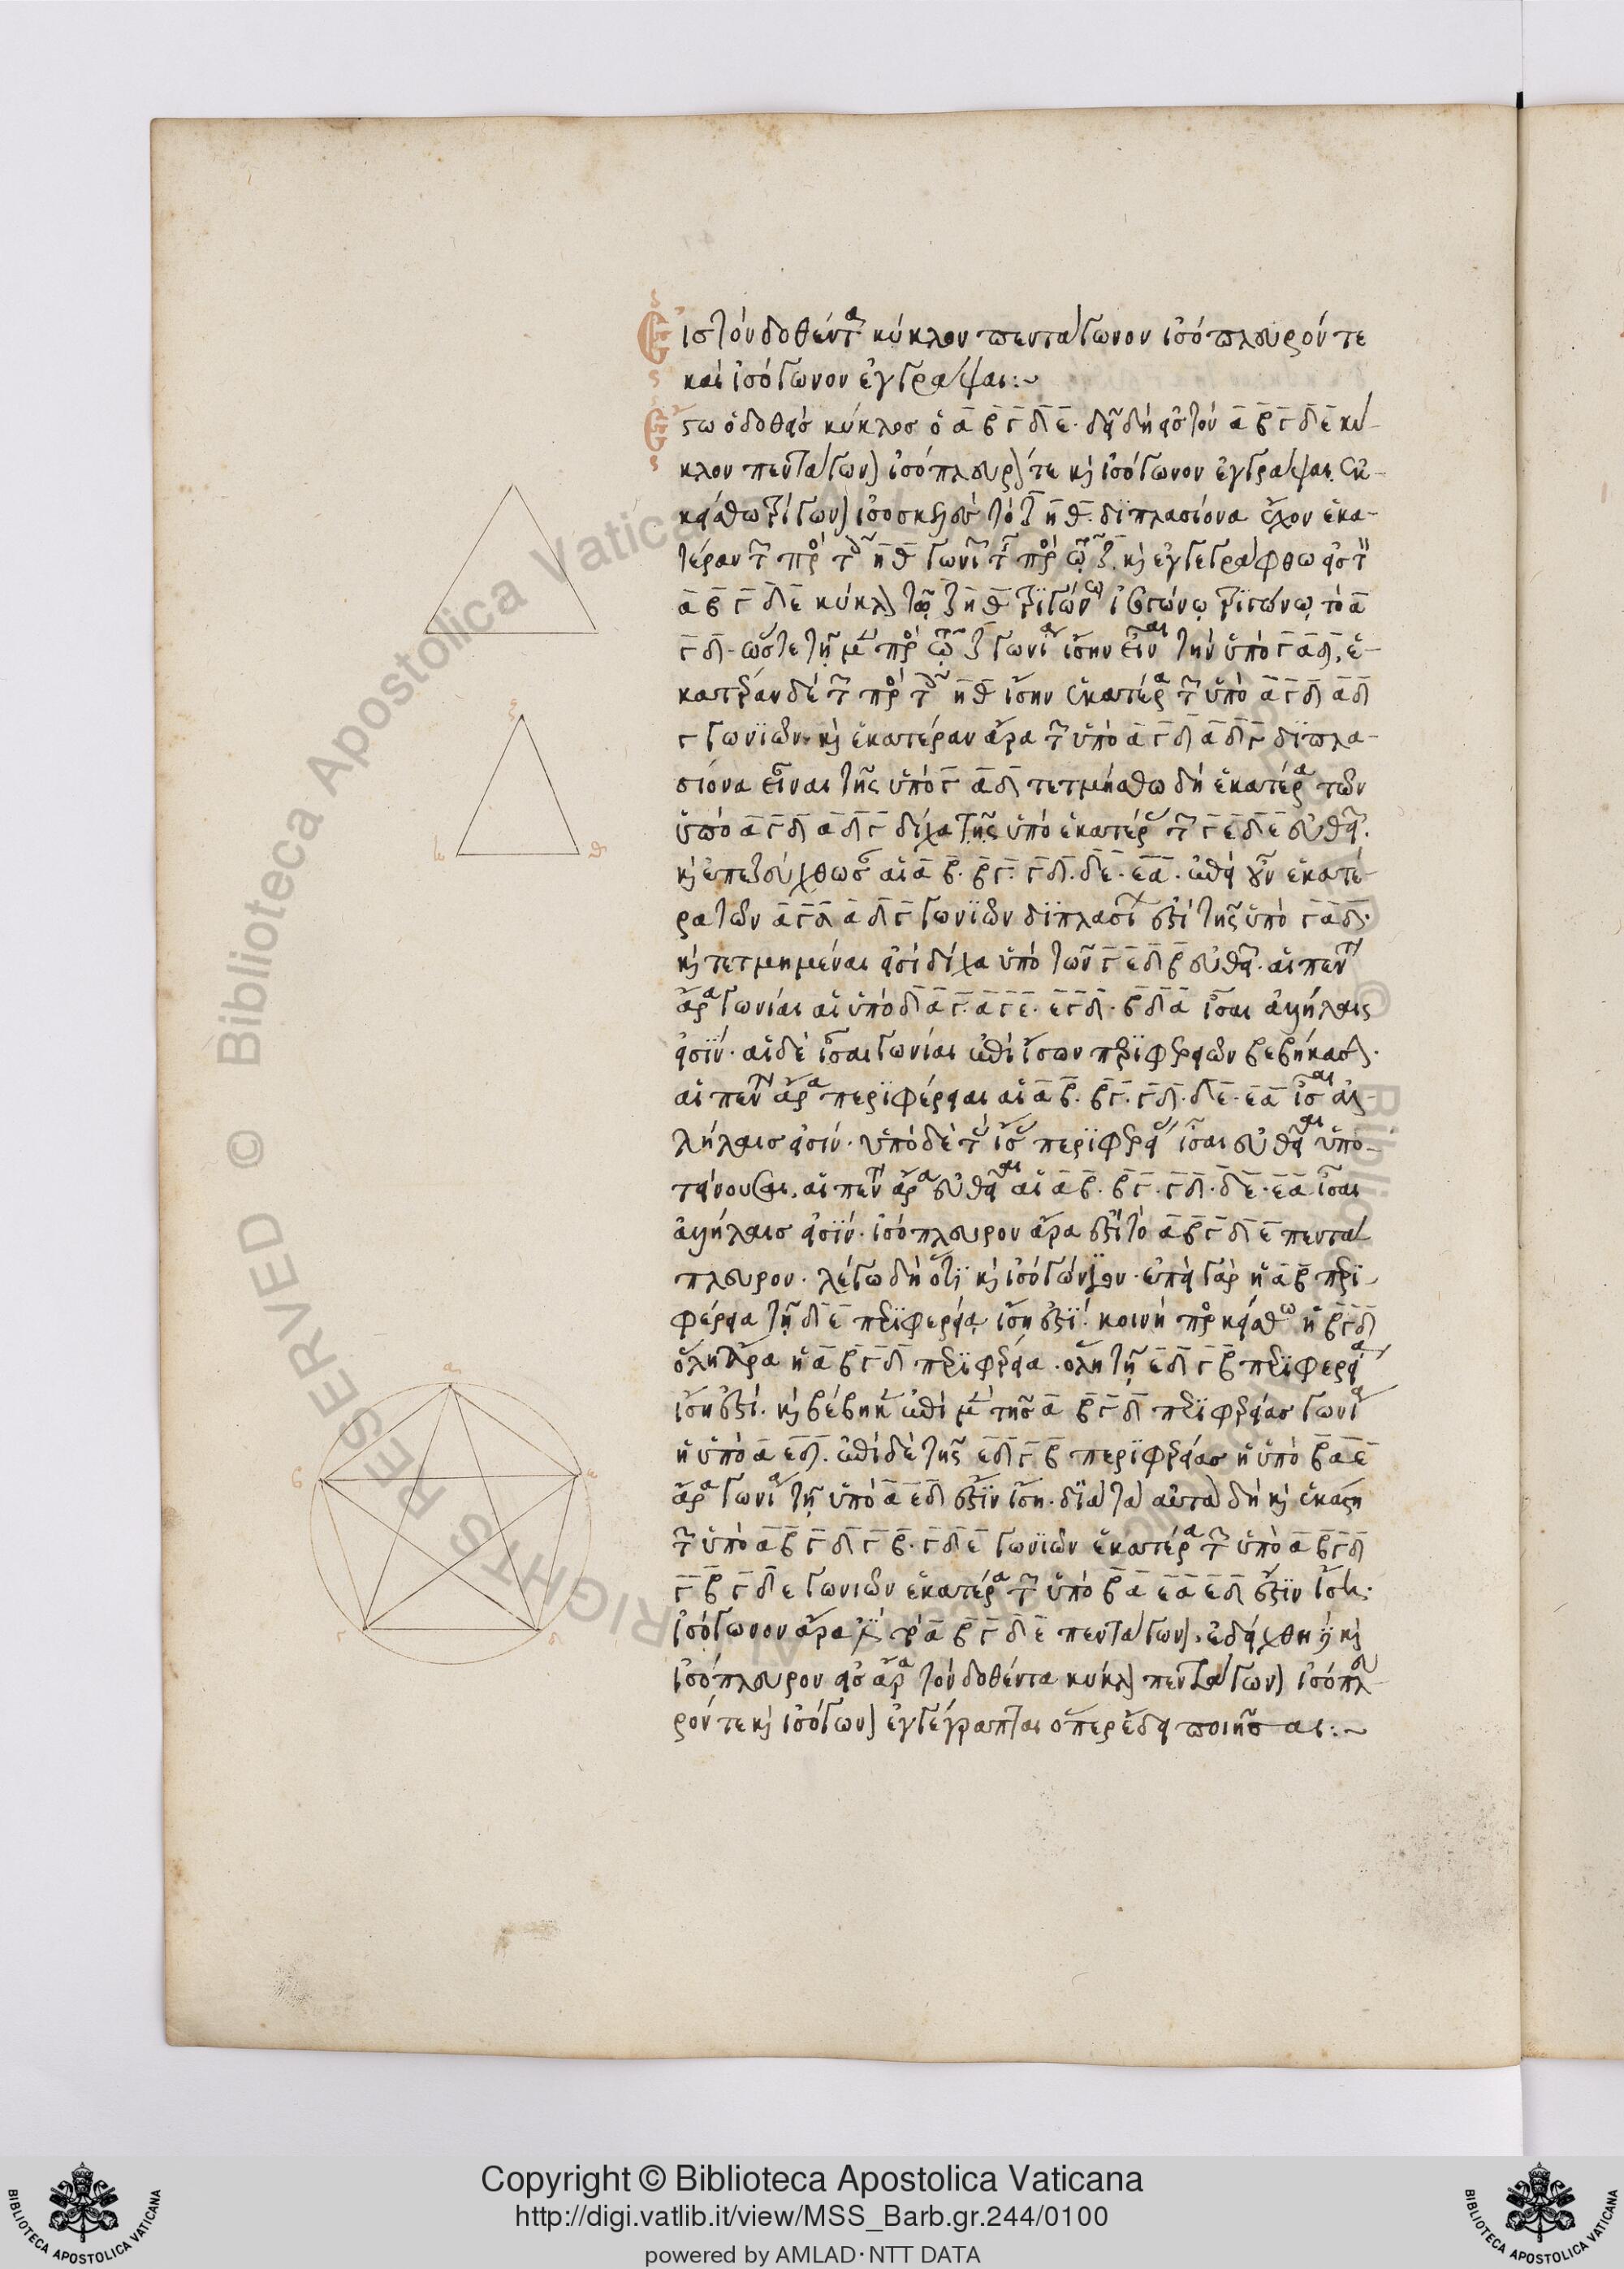 Εἰς τὸν δοθέντα κύκλον πενταγωνον ἰσόπλευρόν τε
καὶ ἰσόγωνον ἐγγράψαι:~
Ἔστω ὁ δοθεὶς κύκλος ὁ α β γ δ ε· δεῖ δὴ εἰς τὸν α β γ δ ε κύ-
κλον πεντάγωνον ἰσόπλευρόν τε καὶ ἰσόγωνον ἐγγράψαι. ἐκ-
κείσθω τρίγωνον ἰσοσκελὲς τὸ ζ η θ. διπλασίονα ἔχον ἑκα-
τέραν τῶν πρὸς τοῖς η θ γωνιῶν τῆς πρὸς τῷ ζ. καὶ ἐγγεγράφθω εἰς τὸν
α β γ δ ε κύκλον τῷ ζ η θ τριγώνῳ ἰσογώνιον τρίγωνον τὸ α
γ δ· ὥστε τῇ μὲν πρὸς τῷ ζ γωνίᾳ ἴσην εἶναι τὴν ὑπὸ γ α δ, ἑ-
κατέραν δὲ τῶν πρὸς τοῖς η θ ἴσην ἑκατέρᾳ τῶν ὑπὸ α γ δ α δ
γ γωνιῶν. καὶ ἑκατέραν ἄρα τῶν ὑπὸ α γ δ α δ γ διπλα-
σίονα εἶναι τῆς ὑπὸ γ α δ τετμήσθω δὴ ἑκατέρα τῶν
ὑπὸ α γ δ α δ γ δίχα ὑπὸ ἑκατέρας τῶν γ ε δ ε εὐθειῶν.
καὶ ἐπεζεύχθωσαν αἱ α β. β γ. γ δ. δ ε. ε α. ἐπεὶ οὖν ἑκατέ-
ρα τῶν α γ δ α δ γ γωνιῶν διπλασίων ἐστὶ τῆς ὑπὸ γ α δ·
καὶ τετμημέναι εἰσὶ δίχα ὑπὸ τῶν γ ε δ β εὐθειῶν. αἱ πέντε
ἄρα γωνίαι αἱ ὑπὸ δ α γ. α γ ε. ε γ δ. β δ α ἴσαι ἀλλήλαις
εἰσίν. αἱ δὲ ἴσαι γωνίαι ἐπὶ ἴσων περιφερειῶν βεβήκασιν.
αἱ πέντε ἄρα περιφέρειαι αἱ α β. β γ. γ δ. δ ε. ε α ἴσαι ἀλ-
λήλαις εἰσίν. ὑπὸ δὲ τὰς ἴσας περιφερείας ἴσαι εὐθεῖαι ὑπο-
τείνουσαι. αἱ πέντε ἄρα εὐθεῖαι αἱ α β. β γ. γ δ. δ ε. ε α ἴσαι
ἀλλήλαις εἰσίν. ἰσόπλευρον ἄρα ἐστὶ τὸ α β γ δ ε πεντά
πλευρον. λέγω δὴ ὅτι καὶ ἰσογώνιον. ἐπεὶ γὰρ ἡ α β περι-
φέρεια τῇ δ ε περιφερείᾳ ἴση ἐστί. κοινὴ προσκείσθω ἡ β γ δ
ὅλη ἄρα ἡ α β γ δ περιφέρεια. ὅλῃ τῇ ε δ γ β περιφερείᾳ
ἴση ἐστί. καὶ βέβηκεν ἐπὶ μὲν τῆς α β γ δ περιφερείας γωνία
ἡ ὑπὸ α ε δ. ἐπὶ δὲ τῆς ε δ γ β περιφερείας ἡ ὑπὸ β α ε
ἄρα γωνία τῇ ὑπὸ α ε δ ἐστὶν ἴση. διὰ τὰ αὐτὰ δὴ καὶ ἑκάστη
τῶν ὑπὸ α β γ δ γ β. γ δ ε γωνιῶν ἑκατέρα τῶν ὑπὸ α β γ δ
γ β γ δ ε γωνιῶν ἑκατέρα τῶν ὑπὸ β α ε α ε δ ἐστὶν ἴση.
ἰσόγωνον ἄρα ἐστὶ τὸ α β γ δ ε πεντάγωνον. ἐδείχθη δὲ καὶ
ἰσόπλευρον εἰς ἄρα τὸν δοθέντα κύκλον πεντάγωνον ἰσόπλευ-
ρόν τε καὶ ἰσόγωνον ἐγγέγραπται ὅπερ ἔδει ποιῆσαι:~
ζ
θ
α
β
ε
γ
δ
© Biblioteca Apostolica Vaticana
RIGHTS RESERVED
Copyright © Biblioteca Apostolica Vaticana
http://digi.vatlib.it/view/MSS_Barb.gr.244/0100
powered by AMLAD·NTT DATA
BIBLIOTECA APOSTOLICA VATICANA
BIBLIOTECA APOSTOLICA VATICANA